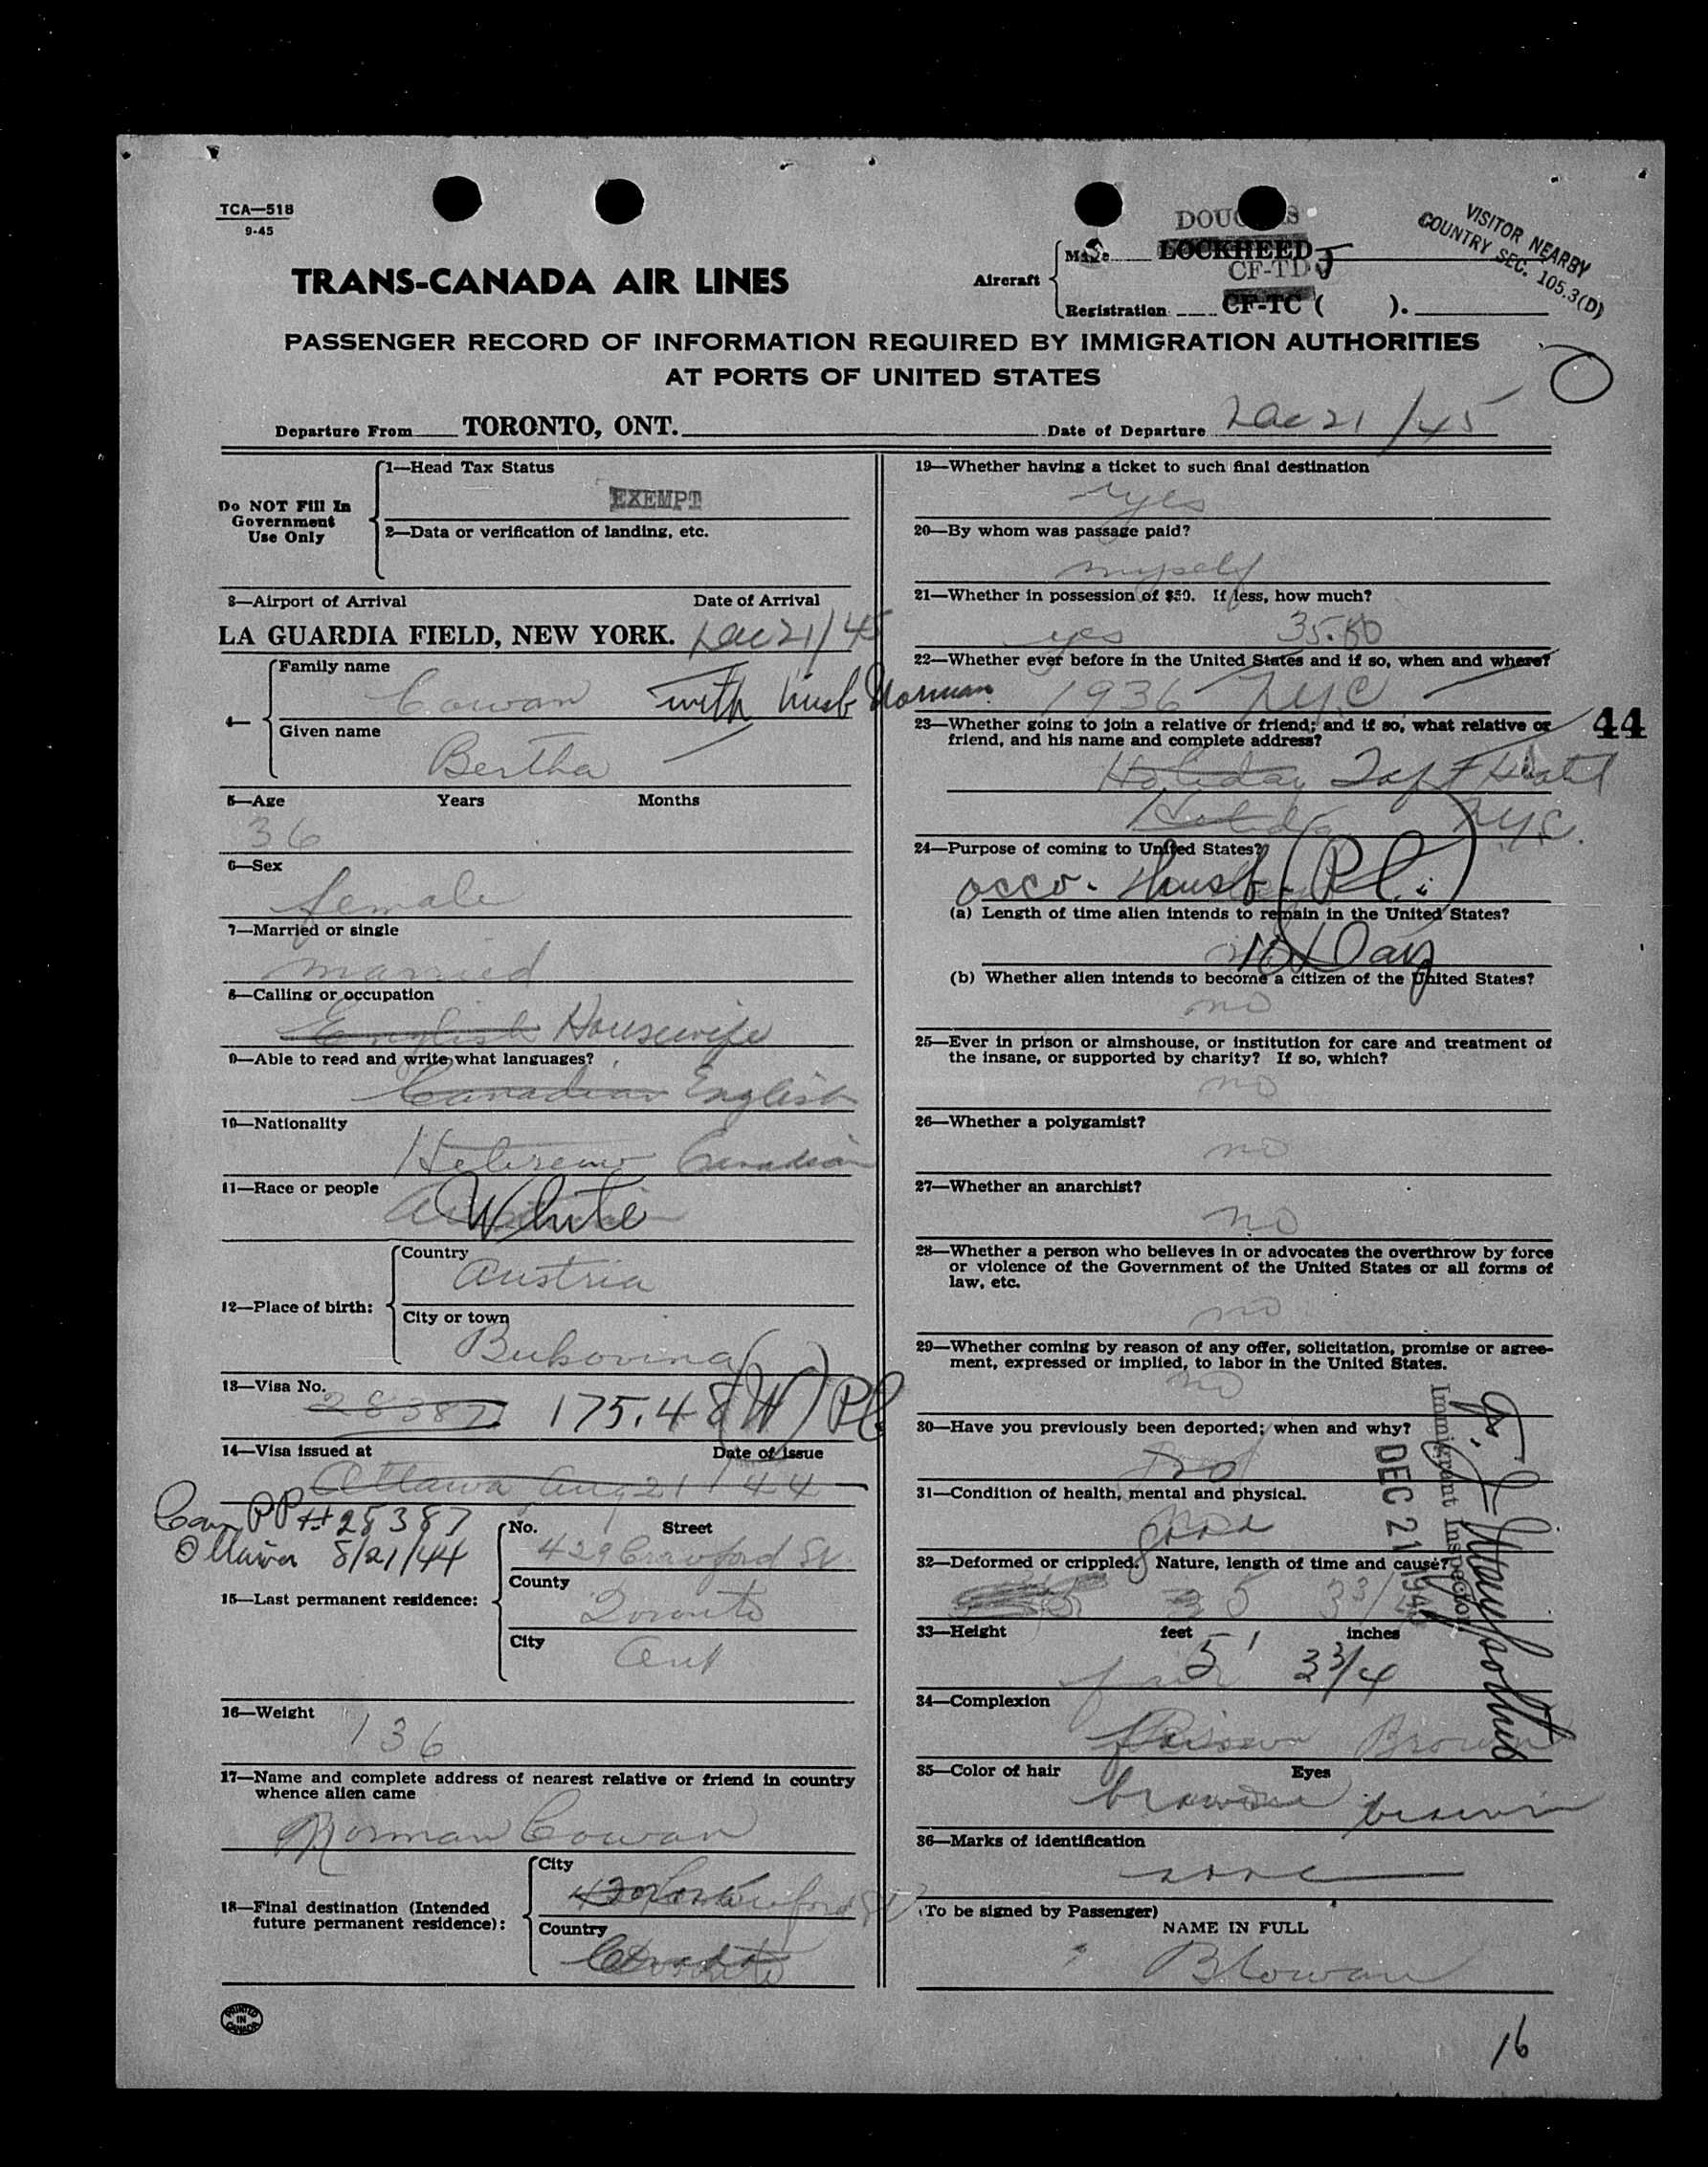 TCA—518
9-45
DOUGLAS
VISITOR NEARBY
COUNTRY SEC. 105.3(D)
TRANS-CANADA AIR LINES
Aircraft
Make LOCKHEED
CF-TD J
Registration CF-TC ( ).
PASSENGER RECORD OF INFORMATION REQUIRED BY IMMIGRATION AUTHORITIES
AT PORTS OF UNITED STATES
Departure From TORONTO, ONT.
Date of Departure Dec 21/45
Do NOT Fill In
Government
Use Only
1—Head Tax Status
EXEMPT
2—Data or verification of landing, etc.
3—Airport of Arrival Date of Arrival
LA GUARDIA FIELD, NEW YORK. Dec 21/45
4—
Family name
Cowan with husb Norman
Given name
Bertha
5—Age Years Months
36
6—Sex
female
7—Married or single
married
8—Calling or occupation
English Housewife
9—Able to read and write what languages?
Canadian English
10—Nationality
Hebrew Canadian
11—Race or people
White
12—Place of birth:
Country
Austria
City or town
Bukovina
13—Visa No.
28387 175.48 (W) PL
14—Visa issued at Date of issue
Ottawa Aug 21 / 44
Can PP # 28387
Ottawa 8/21/44
15—Last permanent residence:
No. Street
429 Crawford St.
County
Toronto
City
Ont
16—Weight
136
17—Name and complete address of nearest relative or friend in country
whence alien came
Norman Cowan
18—Final destination (Intended
future permanent residence):
City
Country
PRINTED
IN
CANADA
19—Whether having a ticket to such final destination
yes
20—By whom was passage paid?
myself
21—Whether in possession of $50. If less, how much?
yes 35.00
22—Whether ever before in the United States and if so, when and where?
1936 NYC
23—Whether going to join a relative or friend; and if so, what relative or
friend, and his name and complete address?
44
Holiday Taft Hotel
NYC.
24—Purpose of coming to United States?
acco. Husb. (PL.)
(a) Length of time alien intends to remain in the United States?
10 Day
(b) Whether alien intends to become a citizen of the United States?
no
25—Ever in prison or almshouse, or institution for care and treatment of
the insane, or supported by charity? If so, which?
no
26—Whether a polygamist?
no
27—Whether an anarchist?
no
28—Whether a person who believes in or advocates the overthrow by force
or violence of the Government of the United States or all forms of
law, etc.
no
29—Whether coming by reason of any offer, solicitation, promise or agree-
ment, expressed or implied, to labor in the United States.
no
30—Have you previously been deported; when and why?
no
31—Condition of health, mental and physical.
Good
32—Deformed or crippled. Nature, length of time and cause?
5 3 3/4
33—Height feet inches
5' 3 3/4
fair
34—Complexion
Brown
35—Color of hair Eyes
brown brown
36—Marks of identification
none
DEC 21 194
Immigrant Inspector
(To be signed by Passenger)
NAME IN FULL
B Cowan
16